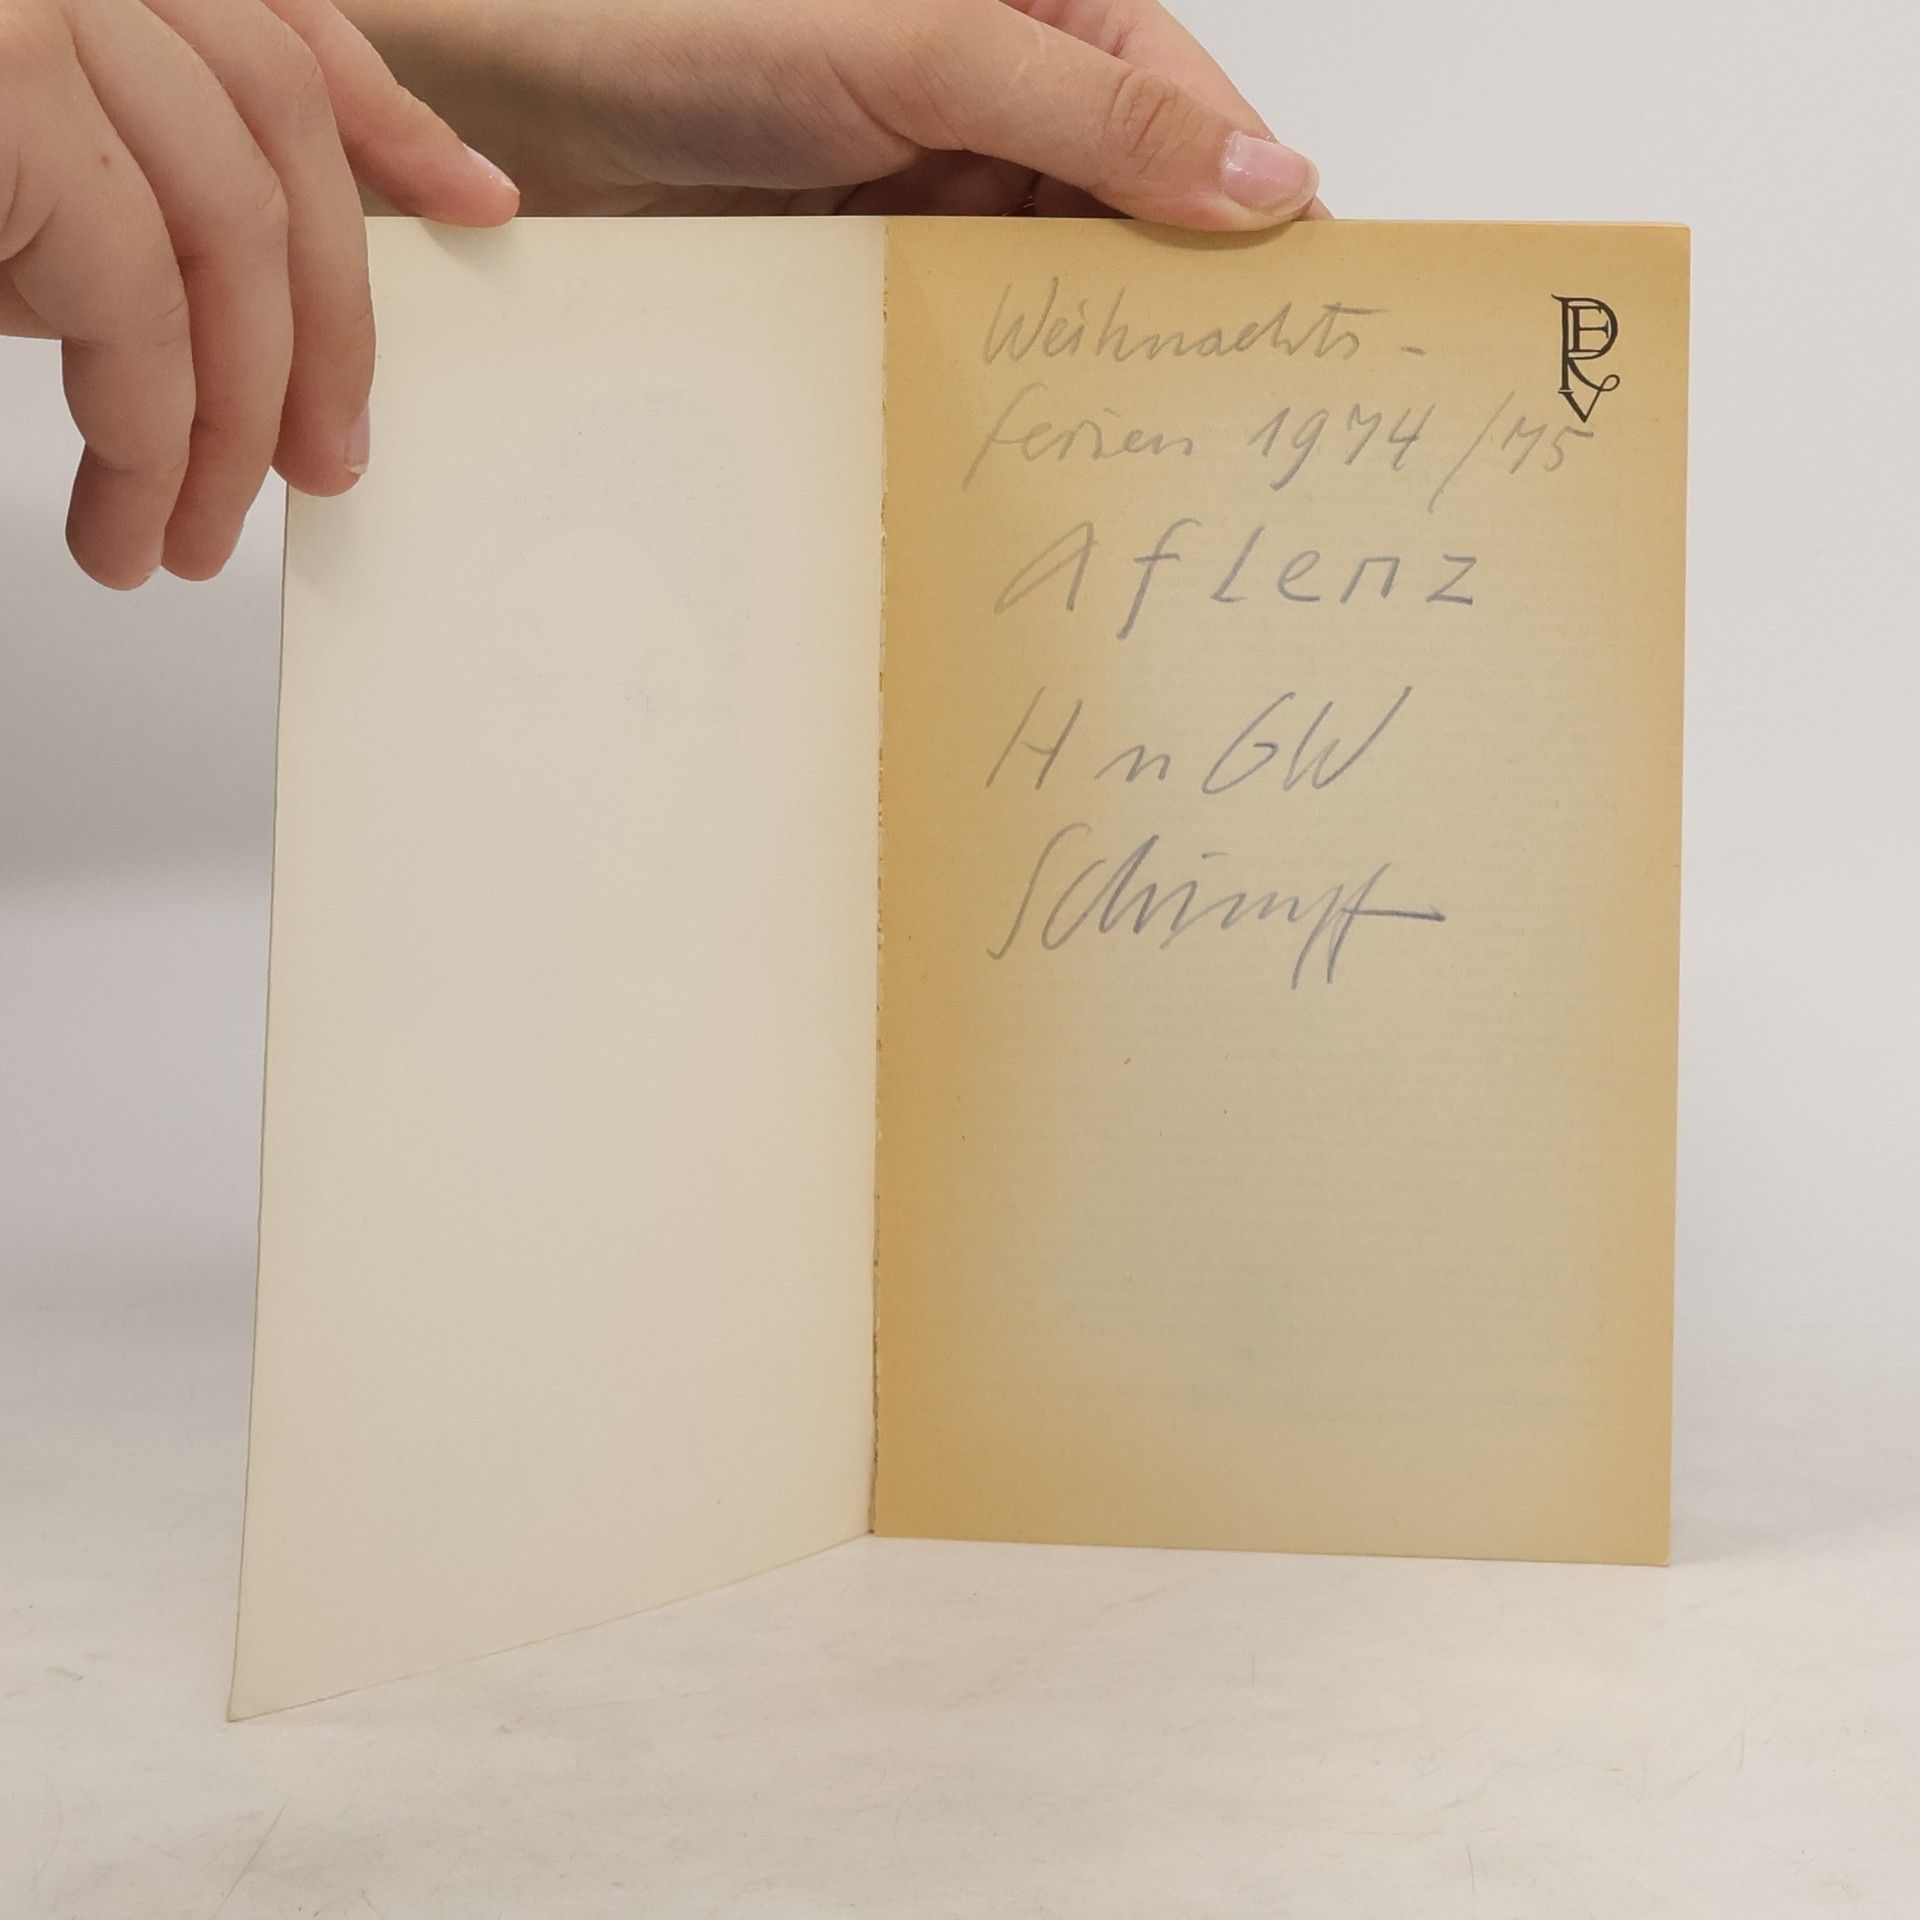 Weihnachts-
ferien 1974/75
Aflenz
H n GW
Schimpf